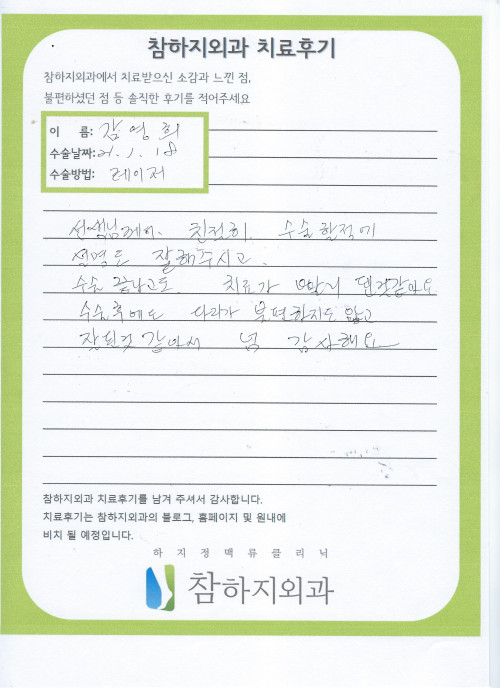 참하지외과 치료후기
참하지외과에서 치료받으신 소감과 느낀 점,
불편하셨던 점 등 솔직한 후기를 적어주세요
이 름: 김영희
수술날짜: 21. 1. 18
수술방법: 레이저
선생님께서 친절히 수술할적에
설명도 잘해주시고.
수술 끝나고도 치료가 빨리 된것같아요
수술후에도 다리가 불편하지도 않고
잘된것 같아서 넘 감사해요
참하지외과 치료후기를 남겨 주셔서 감사합니다.
치료후기는 참하지외과의 블로그, 홈페이지 및 원내에
비치 될 예정입니다.
하지정맥류클리닉
참하지외과